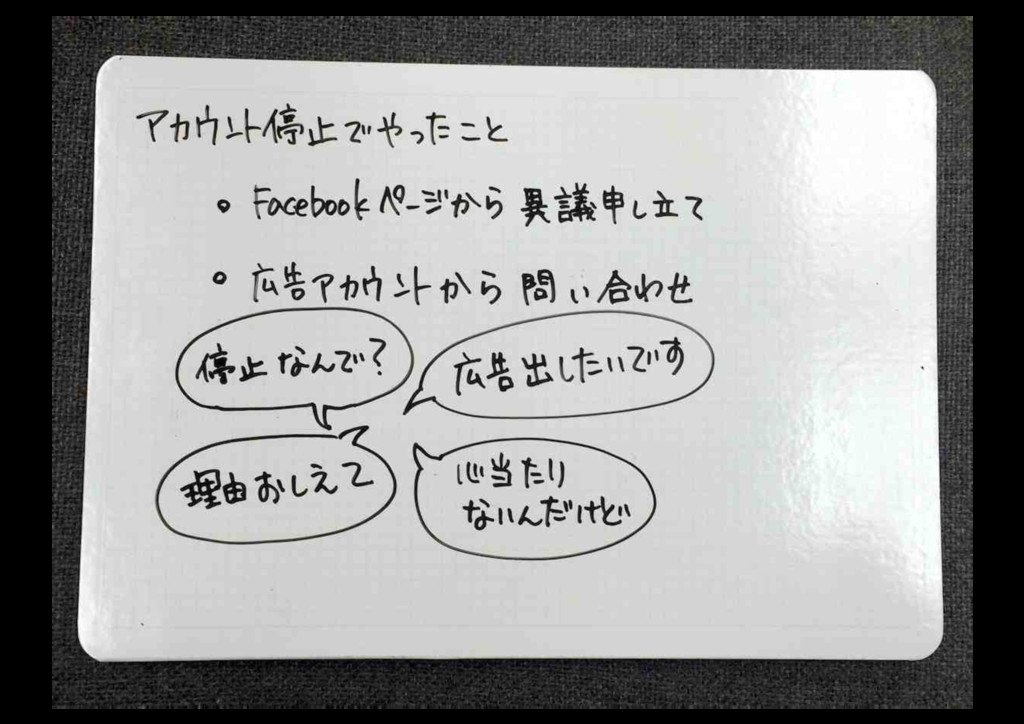 アカウント停止でやったこと
• Facebookページから異議申し立て
• 広告アカウントから問い合わせ
停止なんで?
広告出したいです
理由おしえて
心当たり
ないんだけど